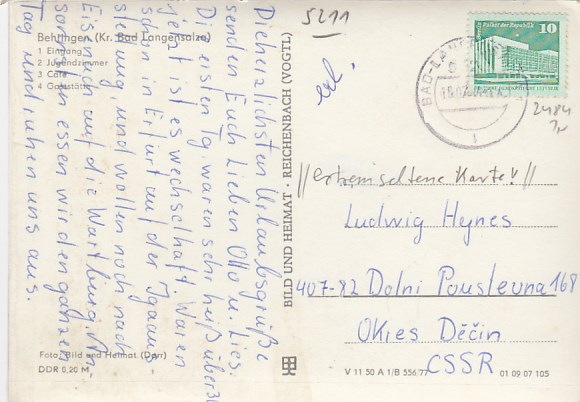 Behringen (Kr. Bad Langensalza)
1 Eingang
2 Jugendzimmer
3 Café
4 Gaststätte
Die herzlichsten Urlaubsgrüße
senden Euch Lieben Otto u. Lies.
Die ersten Tg. waren sehr heiß über 30
jetzt ist es wechselhaft. Waren
schon in Erfurt auf der Jgaaus-
stellung, und wollen noch nach
Eisenach auf die Wartburg. An-
sonsten essen wir den ganzen
Tag und ruhen uns aus.
Foto: Bild und Heimat (Darr)
DDR 0,20 M
BILD UND HEIMAT · REICHENBACH (VOGTL)
5211
Palast der Republik
10
BAD
2484
//extrem seltene Karte!//
Ludwig Heynes
407-82 Dolni Poustevna 168
Okres Děčín
CSSR
V 11 50 A 1/B 556/77
01 09 07 105